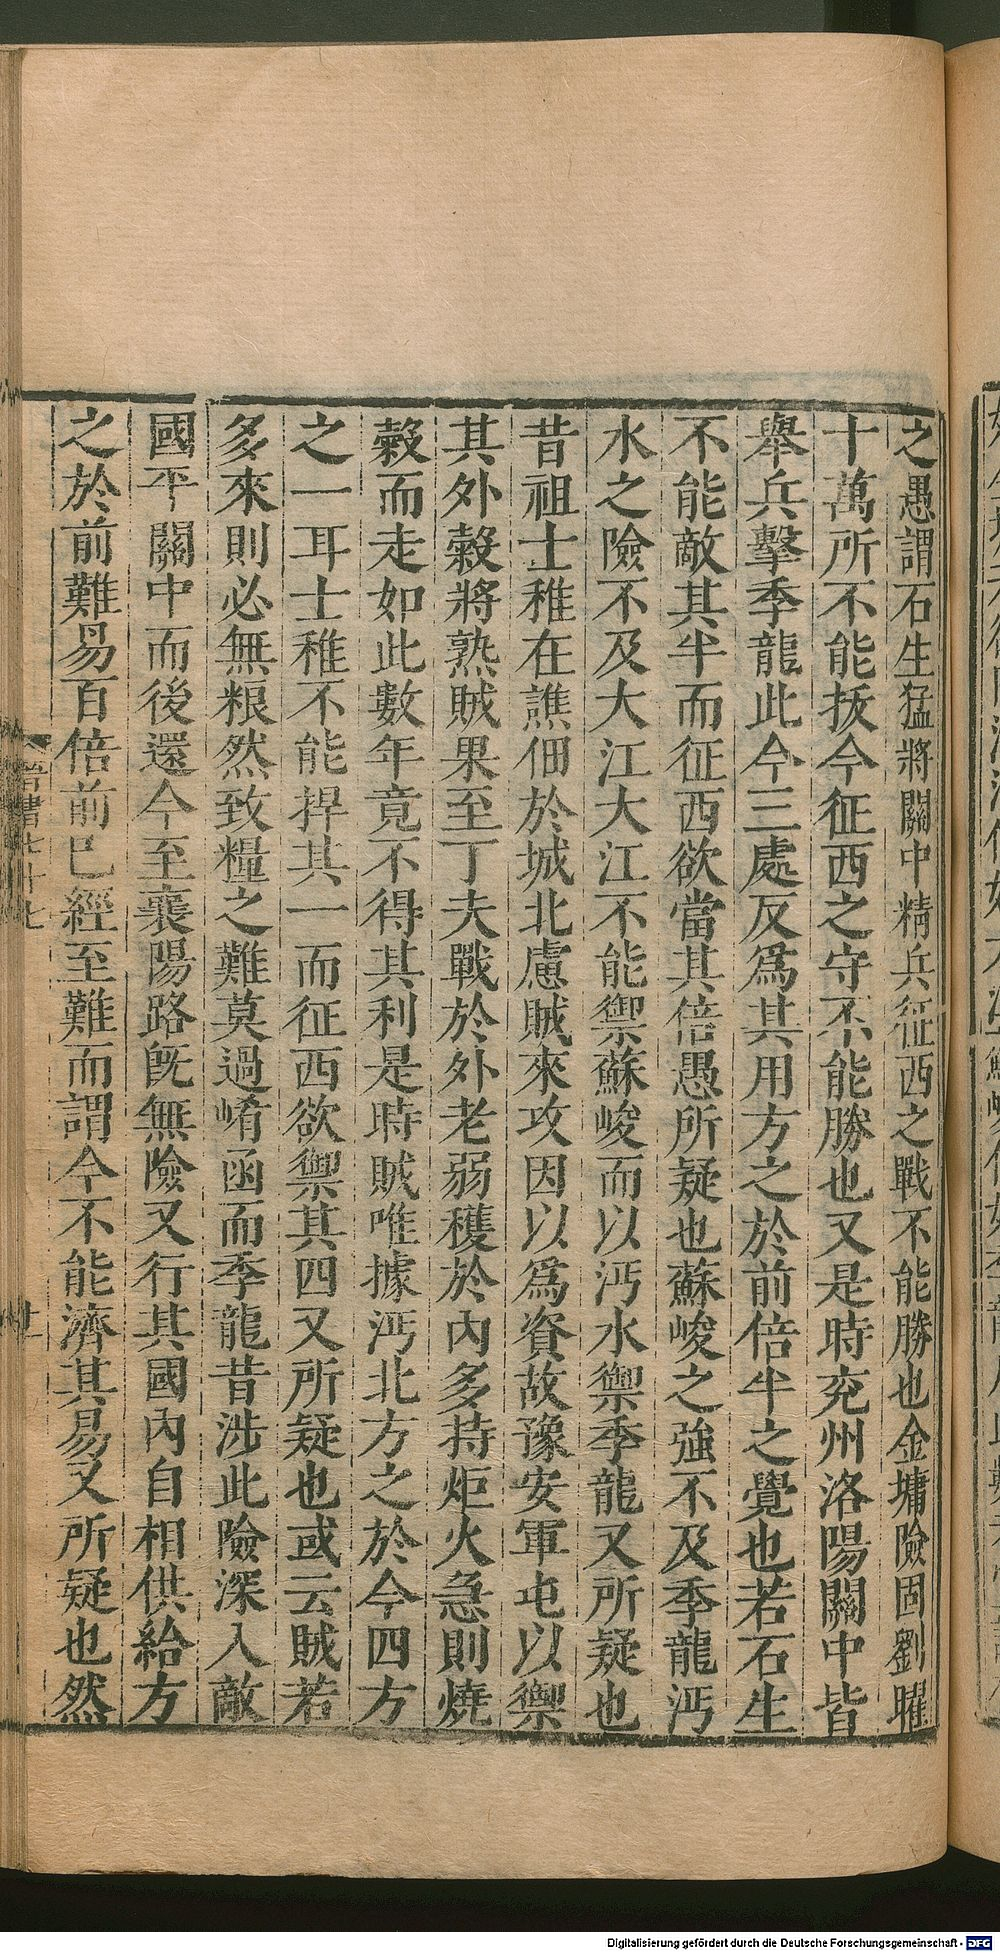 之愚謂石生猛將關中精兵征西之戰不能勝也金墉險固劉曜
十萬所不能拔今征西之守不能勝也又是時兖州洛陽關中皆
舉兵擊季龍此今三處反爲其用方之於前倍半之覺也若石生
不能敵其半而征西欲當其倍愚所疑也蘇峻之強不及季龍沔
水之險不及大江大江不能禦蘇峻而以沔水禦季龍又所疑也
昔祖士稚在譙佃於城北慮賊來攻因以爲資故豫安軍屯以禦
其外穀將熟賊果至丁夫戰於外老弱穫於內多持炬火急則燒
穀而走如此數年竟不得其利是時賊唯據沔北方之於今四方
之一耳士稚不能捍其一而征西欲禦其四又所疑也或云賊若
多來則必無粮然致糧之難莫過崤函而季龍昔涉此險深入敵
國平關中而後還今至襄陽路旣無險又行其國內自相供給方
之於前難易百倍前巳經至難而謂今不能濟其易又所疑也然
晉書七十七
Digitalisierung gefördert durch die Deutsche Forschungsgemeinschaft - DFG